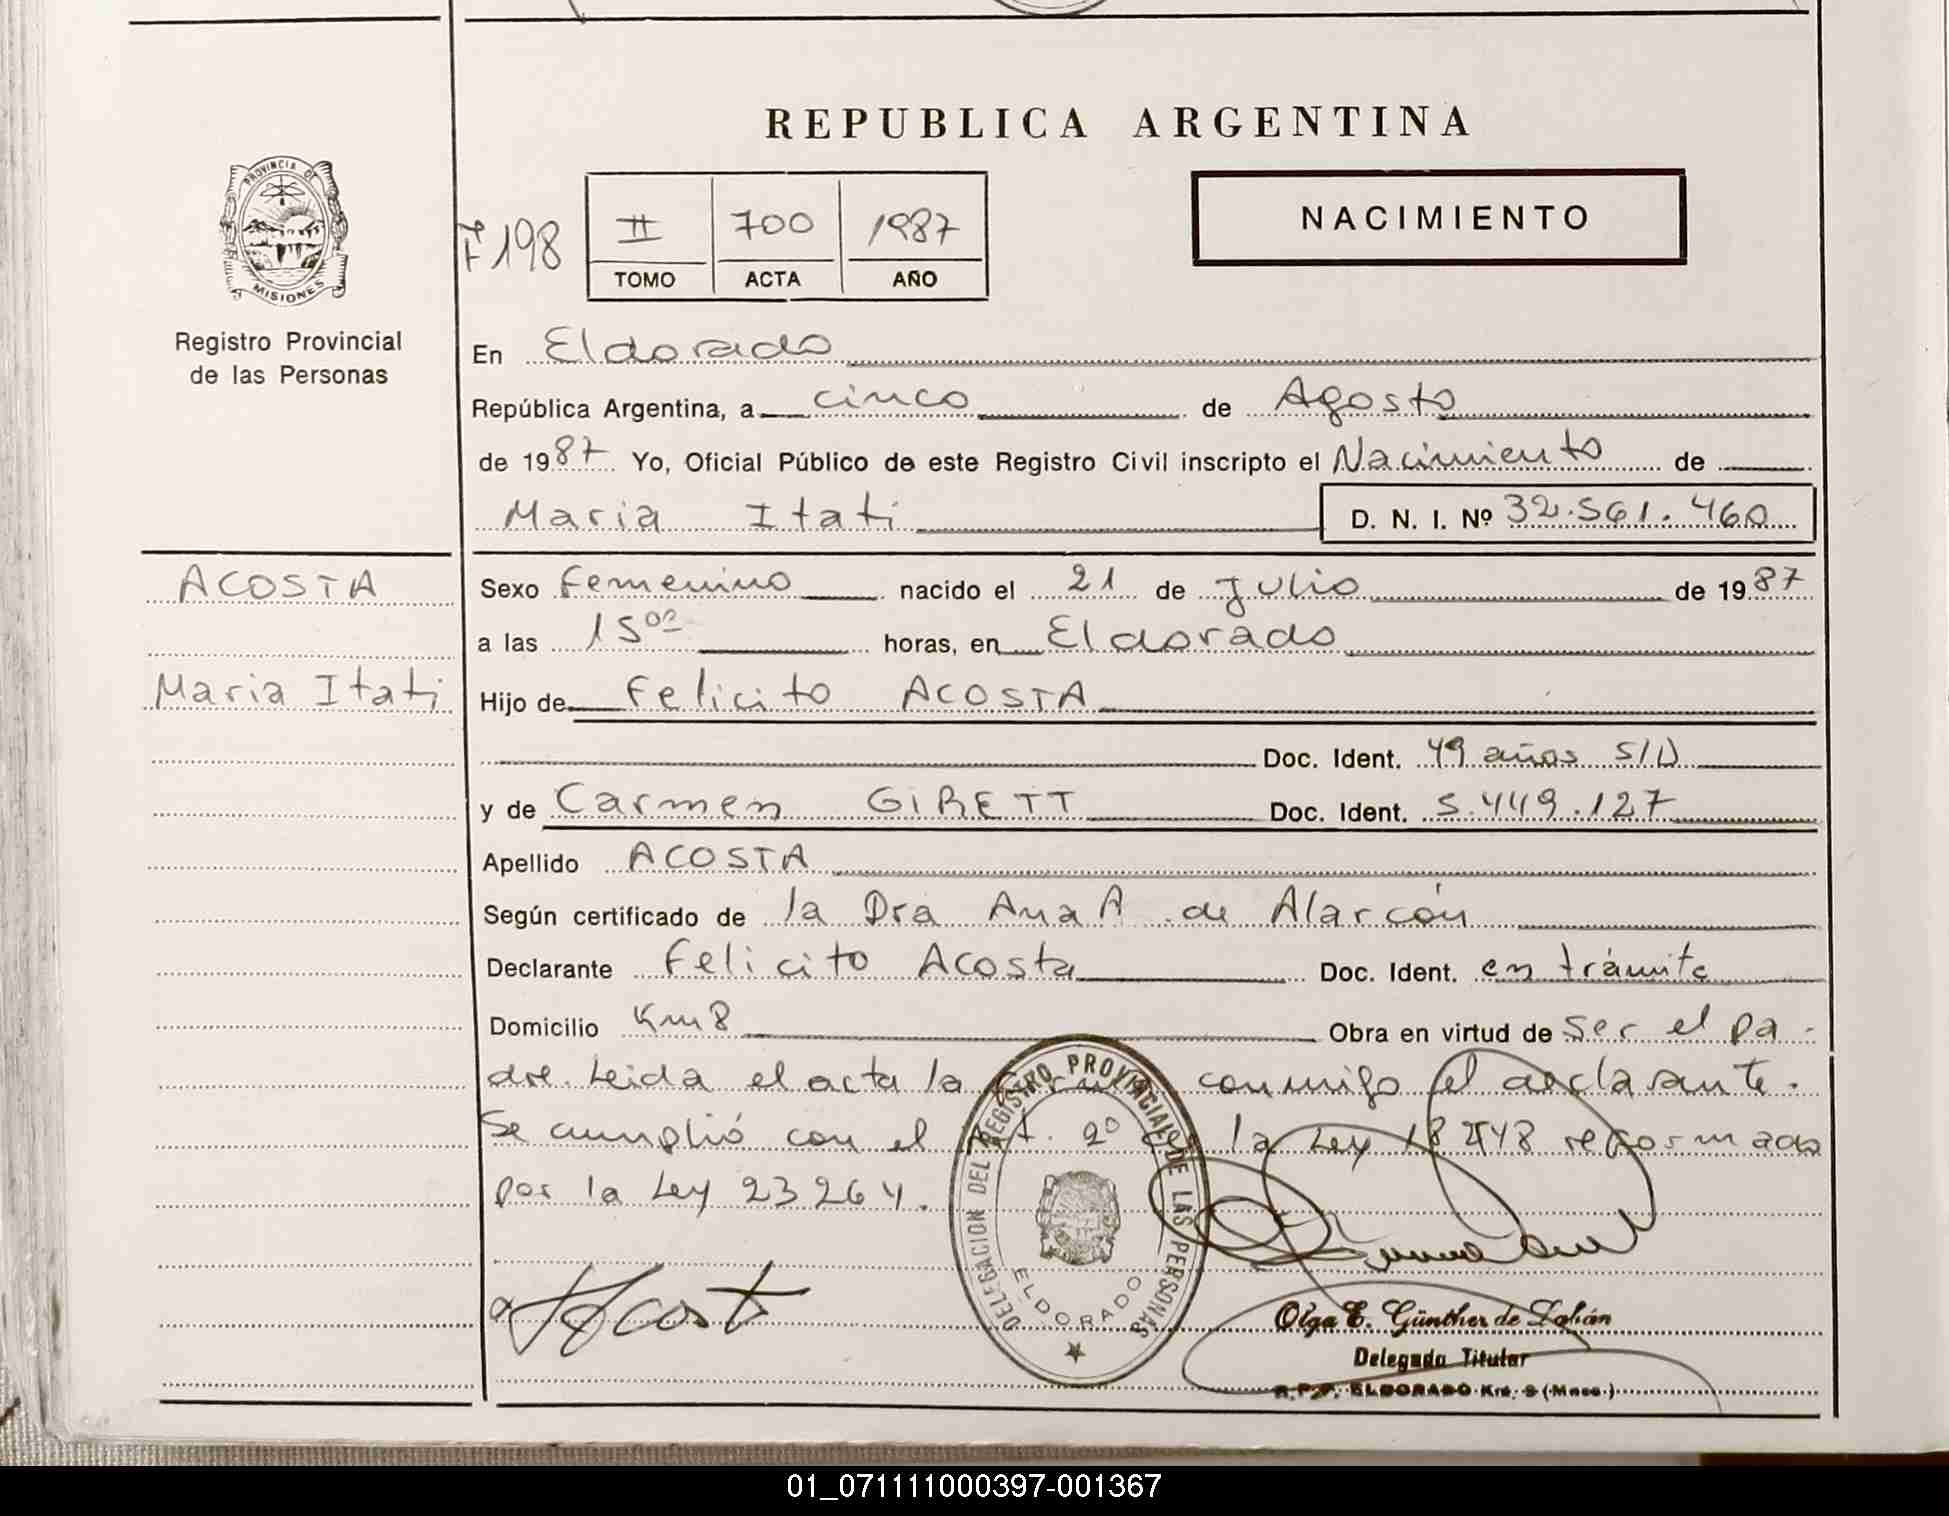 REPUBLICA ARGENTINA
PROVINCIA DE
MISIONES
Registro Provincial
de las Personas
F 198
II 700 1987
TOMO ACTA AÑO
NACIMIENTO
En Eldorado
República Argentina, a cinco de Agosto
de 1987 Yo, Oficial Público de este Registro Civil inscripto el Nacimiento de
Maria Itati D. N. I. Nº 32.561.460
ACOSTA
Maria Itati
Sexo Femenino nacido el 21 de Julio de 1987
a las 15 00 horas, en Eldorado
Hijo de Felicito ACOSTA
Doc. Ident. 49 años S/D
y de Carmen GIRETT Doc. Ident. 5.449.127
Apellido ACOSTA
Según certificado de la Dra Ana A. de Alarcón
Declarante Felicito Acosta Doc. Ident. en trámite
Domicilio Km 8 Obra en virtud de ser el pa-
dre. Leida el acta la conmigo el declarante.
Se cumplió con el Art. 2º de la Ley 18248 reformado
por la Ley 23264.
DELEGACION DEL REGISTRO PROVINCIAL DE LAS PERSONAS
ELDORADO
Acosta
Olga E. Günther de
Delegada Titular
R.P.P. ELDORADO Km. 9 (Mnes.)
01_071111000397-001367